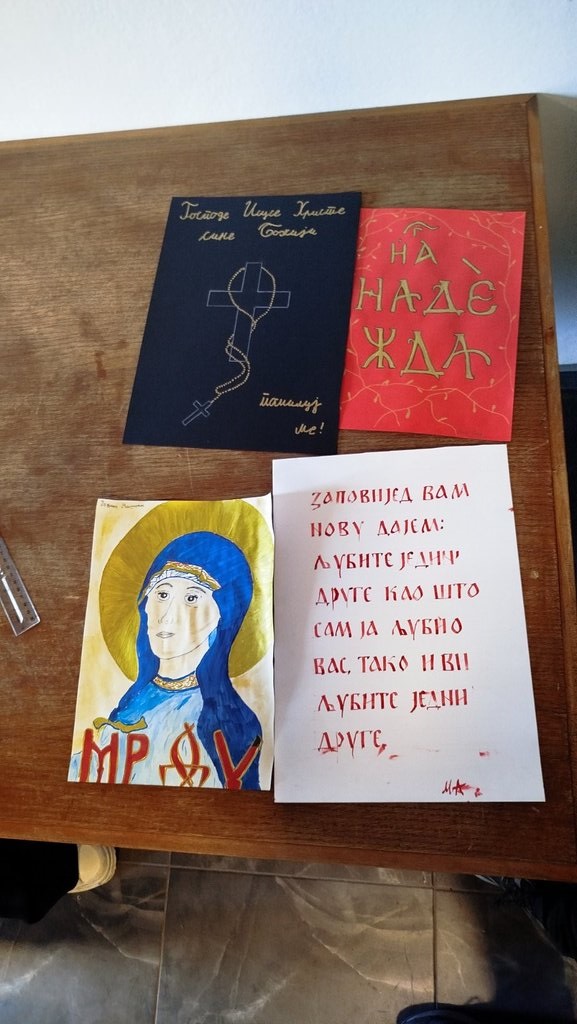 Господе Исусе Христе
сине Божији
помилуј
ме!
НА
НАДЕ
ЖДА
МР ѲУ
ЗАПОВИЈЕД ВАМ
НОВУ ДАЈЕМ:
ЉУБИТЕ ЈЕДНИ
ДРУГЕ КАО ШТО
САМ ЈА ЉУБИО
ВАС, ТАКО И ВИ
ЉУБИТЕ ЈЕДНИ
ДРУГЕ,
МА